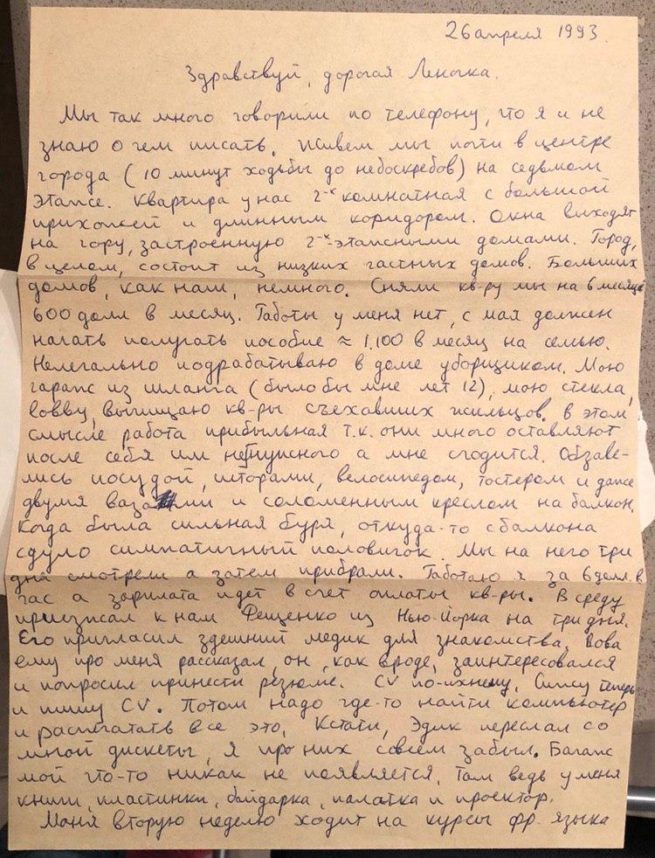 26 апреля 1993.
Здравствуй, дорогая Леночка.
Мы так много говорили по телефону, что я и не
знаю о чем писать. Живем мы почти в центре
города (10 минут ходьбы до небоскребов) на седьмом
этаже. Квартира у нас 2-х комнатная с большой
прихожей и длинным коридором. Окна выходят
на гору, застроенную 2-х этажными домами. Город,
в целом, состоит из низких частных домов. Больших
домов, как наш, немного. Сняли кв-ру мы на 6 месяцев
600 долл в месяц. Работы у меня нет, с мая должен
начать получать пособие ≈ 1.100 в месяц на семью.
Нелегально подрабатываю в доме уборщиком. Мою
гараж из шланга (было бы мне лет 12), мою стекла,
лобби, вычищаю кв-ры съехавших жильцов. В этом
смысле работа прибыльная т.к. они много оставляют
после себя им ненужного а мне сгодится. Обзаве-
лись посудой, шторами, велосипедом, тостером и даже
двумя вазами и соломенным креслом на балкон.
Когда была сильная буря, откуда-то с балкона
сдуло симпатичный половичок. Мы на него три
дня смотрели а затем прибрали. Работаю я за 6 долл. в
час а зарплата идет в счет оплаты кв-ры. В среду
приезжал к нам Фещенко из Нью-Йорка на три дня.
Его пригласил здешний медик для знакомства. Вова
ему про меня рассказал, он, как вроде, заинтересовался
и попросил принести резюме. CV по-ихнему. Сижу теперь
и пишу CV. Потом надо где-то найти компьютер
и распечатать все это. Кстати, Эдик переслал со
мной дискеты, я про них совсем забыл. Багаж
мой что-то никак не появляется. Там ведь у меня
книги, пластинки, байдарка, палатка и проектор.
Маня вторую неделю ходит на курсы фр. языка